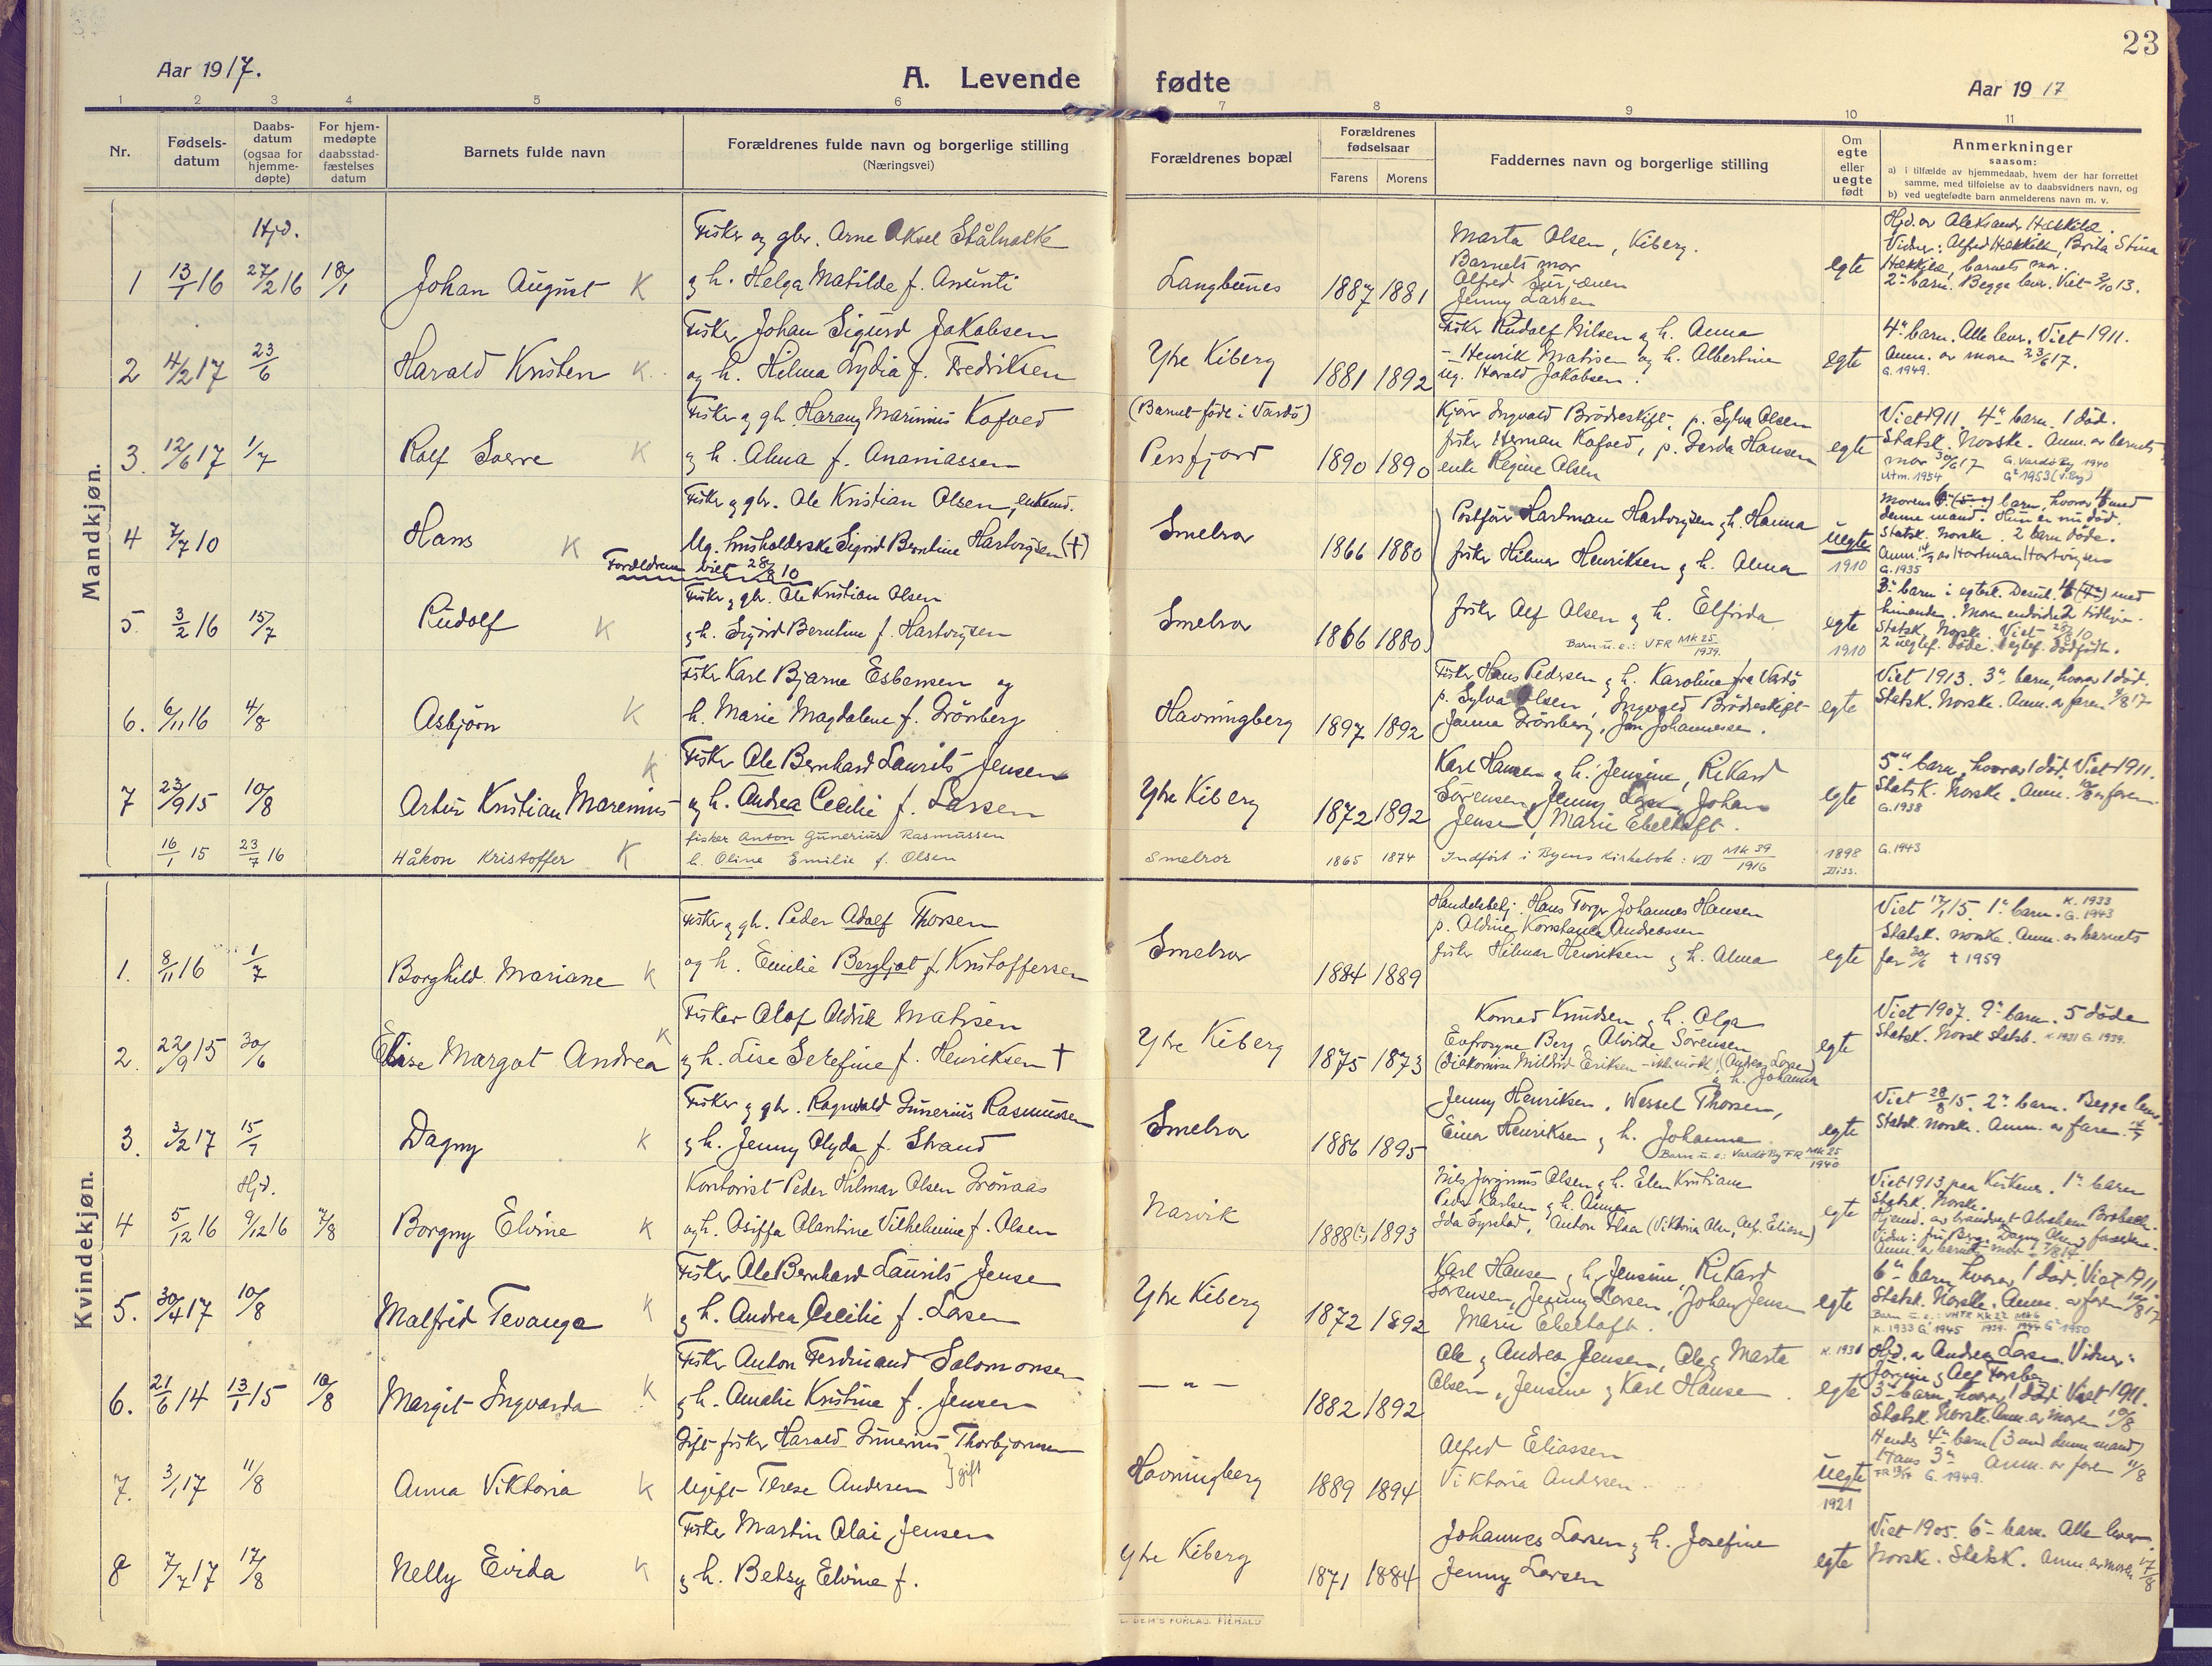 23
Aar 1917.
A. Levende fødte
Aar 1917
1 2 3 4 5 6 7 8 9 10 11
Nr.
Fødsels-
datum
Daabs-
datum
(ogsaa for
hjemme-
døpte)
For hjem-
medøpte
daabsstad-
fæstelses
datum
Barnets fulde navn
Forældrenes fulde navn og borgerlige stilling
(Næringsvei)
Forældrenes bopæl
Forældrenes
fødselsaar
Farens Morens
Faddernes navn og borgerlige stilling
Om
egte
eller
uegte
født
Anmerkninger
saasom:
a) i tilfælde av hjemmedaab, hvem der har forrettet
samme, med tilføielse av to daabsvidners navn, og
b) ved uegtefødte barn anmelderens navn m. v.
Mandkjøn.
Hjd.
1 13/1 16 27/2 16 18/1 Johan August K
Fisker og gbr. Arne Aksel Stålnacke
g h. Helga Matilde f. Anunti
Langbunes 1887 1881
Marta Olsen, Kiberg.
Barnets mor
Alfred
Jenny Larsen
egte
Hjd. av Aleksander Hækkilæ.
Vidner: Alfred Hækkilæ, Brita Stina
Hækkilæ, barnets mor.
2. barn. Begge lever. Viet 3/10 13.
2 4/2 17 23/6 Harald Kristen K.
Fisker Johan Sigurd Jakobsen
og h. Hilma Lydia f. Fredriksen
Ytre Kiberg 1881 1892
Fisker Rudolf Nilsen g h. Anna
- Henrik Matisen og h. Albertine
ug. Harald Jakobsen.
egte
4. barn. Alle lever. Viet 1911.
Anm. av moren 23/6 17.
G. 1949.
3. 12/6 17 1/7 Rolf Sverre K
Fisker g gbr. Harang Marinius Kofoed
g h. Alma f. Ananiassen
(Barnet født i Vardö)
Persfjord 1890 1890
Kjører Ingvald Brödreskift, p. Sylva Olsen
fisker Herman Kofoed, p. Gerda Hansen
enke Regine Olsen
egte
Viet 1911. 4. barn. 1 död.
Statsk. Norske. Anm. av barnets
mor 30/6 17 G. Vardö By 1940
Utm. 1954
4 7/7 10 Hans K
Fisker g gbr. Ole Kristian Olsen, enkemd.
Ug. husholderske Sigrid Berntine Hartvigsen (†)
Forældrene viet 28/8 10
Smelror 1866 1880
Postfører Hartman Hartvigsen g h. Hanna
fisker Hilmar Henriksen g h. Alma
uegte
1910
denne mand. Hun er nu död.
Statsk. Norske. 2 barn döde.
G. 1935
5. 3/2 16 15/7 Rudolf K
Fisker g gbr. Ole Kristian Olsen
g h. Sigrid Berntine f. Hartvigsen
Smelror 1866 1880
fisker Alf Olsen g h. Elfrida
Barn u. e.: VFR Mk 25/1939.
egte
1910
Statsk. Norske. Viet 28/8 10.
6. 6/11 16 4/8 Asbjörn K
Fisker Karl Bjarne Esbensen og
h. Marie Magdalene f. Grönberg
Havningberg 1897 1892
Fisker Hans Pedersen g h. Karoline fra Vardö
p. Sylva Olsen, Ingvald Brödreskift
Janna Grönberg, Jon Johannessen.
egte
Viet 1913. 3. barn, hvorav 1 död.
Statsk. Norske. Anm. av faren 4/8 17
7 23/9 15 10/8 Artur Kristian Marenius K
Fisker Ole Bernhard Laurits Jensen
g h. Andrea Cecilie f. Larsen
Ytre Kiberg 1872 1892
Karl Hansen g h. Jensine, Rikard
Sörensen, Jenny Larsen, Johan
Jensen, Marie Ebeltoft.
egte
5. barn, hvorav 1 död. Viet 1911.
Statsk. Norske. Anm. 10/8 av faren.
G. 1938
16/1 15 23/7 16 Håkon Kristoffer K
fisker Anton Gunerius Rasmussen
h. Oline Emilie f. Olsen
Smelror 1865 1874
Indført i Byens Kirkebok: VII Mk 39/1916
1898
Diss.
G. 1943
Kvindekjøn.
1. 8/11 16 1/7 Borghild Mariane K
Fisker g gbr. Peder Adolf Thorsen
og h. Emilie Bergljot f. Kristoffersen
Smelror 1884 1889
Handelsbetj. Hans Torger Johannes Hansen
p. Aldine Konstance Andreassen
fisker Hilmar Henriksen g h. Alma
egte
Viet 17/1 15. 1. barn. K. 1933
G. 1943
Statsk. norske. Anm. av barnets
far 30/6 † 1959
2. 22/9 15 30/6 Elise Margot Andrea K
Fisker Olaf Aldrik Matisen
g h. Lise Serefine f. Henriksen †
Ytre Kiberg 1875 1873
Konrad Knudsen g h. Olga
Eufrosyne Berg, Alvilde Sörensen
(Diakonisse Mildrid Eriksen - ikke mött) (Andreas Larsen
g h. Johanna
egte
Viet 1907. 9. barn. 5 döde
Statsk. Norsk Statsb. K. 1931 G. 1939.
3. 3/2 17 15/7 Dagny K
Fisker g gbr. Ragnvald Gunerius Rasmussen
g h. Jenny Alyda f. Strand
Smelror 1886 1895
Jenny Henriksen, Wessel Thorsen,
Einar Henriksen g h. Johanna
Barn u. e.: Vardö By FR Mk 25/1940
egte
Viet 28/8 15. 2. barn. Begge lever.
Statsk. Norske. Anm. av faren
Hjd.
4 5/12 16 9/12 16 7/8 Borgny Elvine K
Kontorist Peder Hilmar Olsen Grönaas
og h. Osiffa Olantine Vilhelmine f. Olsen
Narvik 1888(?) 1893
Nils Jorginus Olsen g h. Elen Kristiane
Peder Karlsen g h. Anna
Ida Syrstad, Anton Flaa
egte
Viet 1913 paa Kirkenes. 1. barn
Statsk. Norske.
5. 30/4 17 10/8 Malfrid Tevanga K
Fisker Ole Bernhard Laurits Jensen
g h. Andrea Cecilie f. Larsen
Ytre Kiberg 1872 1892
Karl Hansen g h. Jensine, Rikard
Sörensen, Jenny Larsen, Johan Jensen
Marie Ebeltoft.
egte
6. barn, hvorav 1 död. Viet 1911.
Statsk. Norske. Anm. av faren 10/8 17
K. 1933 G. 1945
6. 21/6 14 13/1 15 10/8 Margit Ingvarda K
Fisker Anton Ferdinand Salomonsen
g h. Amalie Kristine f. Jensen
— " — 1882 1892
Ole g Andrea Jensen, Ole g Marta
Olsen, Jensine g Karl Hansen.
K. 1931
egte
Hjd. av Andreas Larsen. Vidner:
3. barn, hvorav 1 död. Viet 1911.
Statsk. Norske. Anm. av moren 10/8
7. 3/1 17 11/8 Anna Viktoria K
Gift fisker Harald Gunerius Thorbjörnsen
Ugift Therese Andersen } gift
Havningberg 1889 1894
Alfred Eliassen
Viktoria Andersen
uegte
1921
Hendes 4. barn (3 med denne mand)
Hans 3. Anm. av faren 11/8
G. 1949.
8 7/7 17 17/8 Nelly Evida K
Fisker Martin Olai Jensen
g h. Betsy Elvine f.
Ytre Kiberg 1871 1884
Johannes Larsen g h. Josefine
Jenny Larsen
egte
Viet 1905. 6. barn. Alle lever
Norske. Statsk. Anm. av moren 17/8